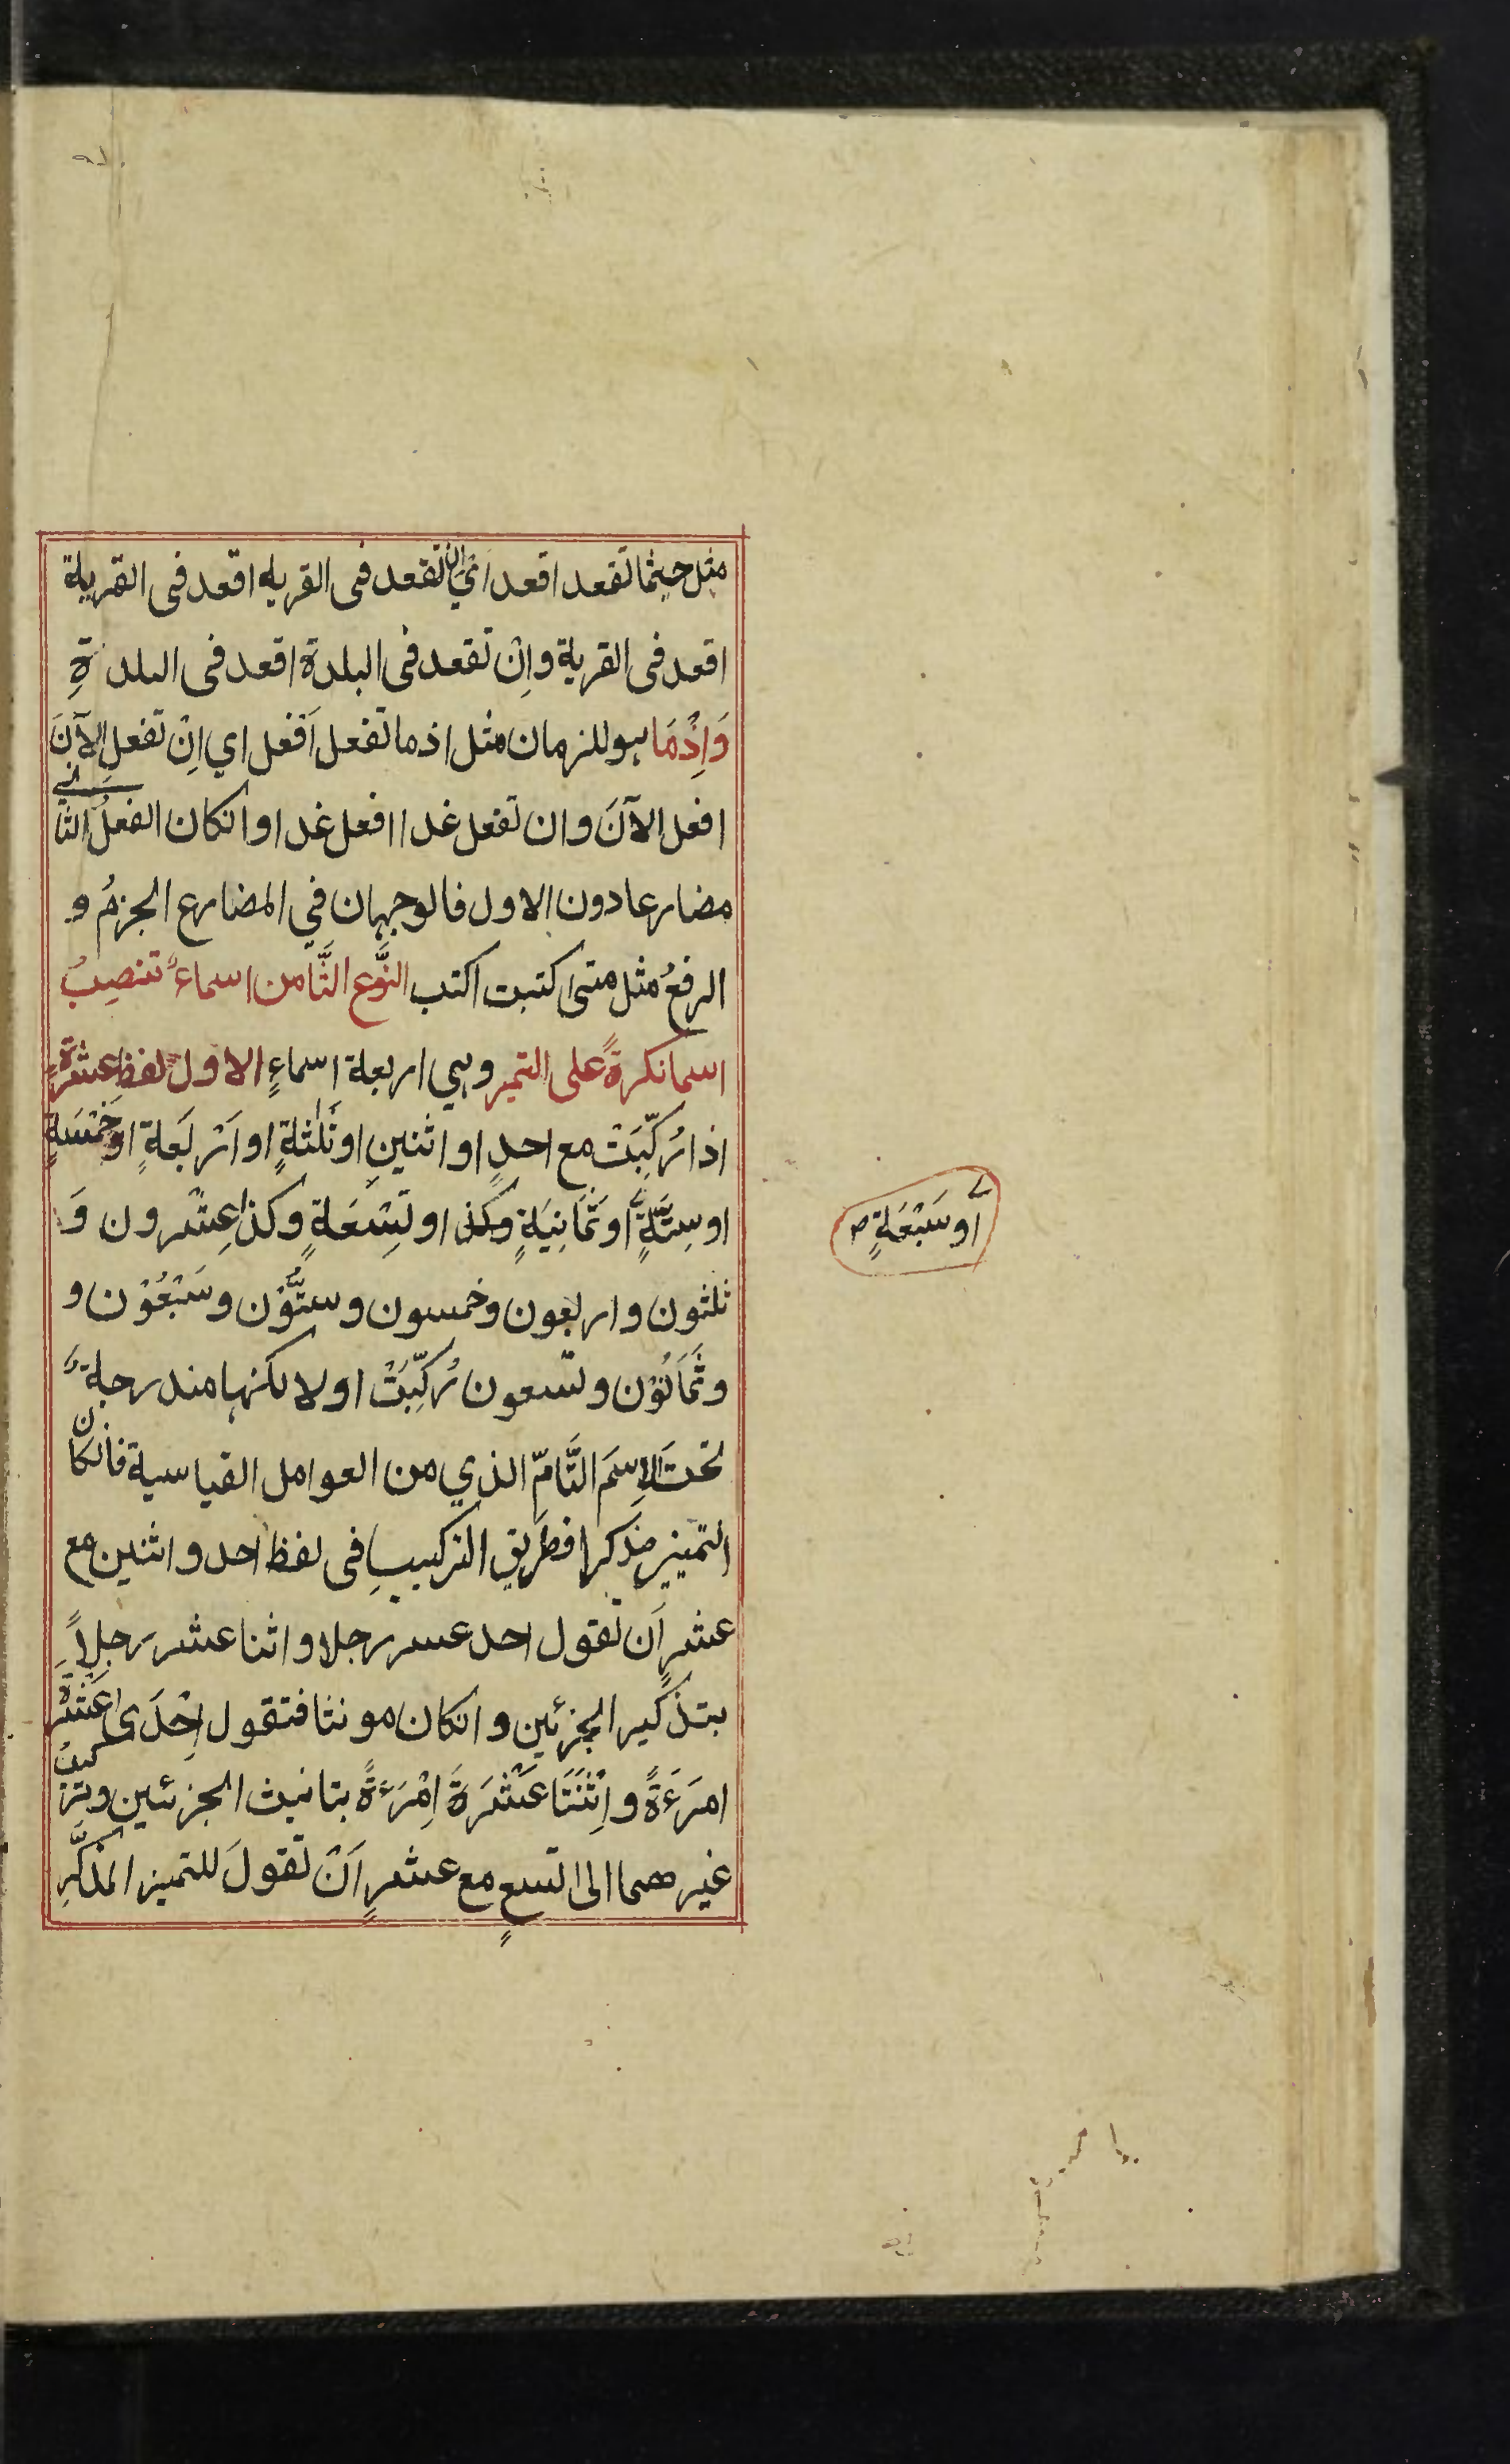 مثل حيثما تقعد اقعد اي ان تقعد فى القريه اقعد فى القرية
اقعد فى القرية واِنْ تقعد فى البلدة اقعد فى البلدةِ
وَاِذْمَا هو للزمان مثل اذ ما تفعل اَفعل اي اِنْ تفعل الآنَ
افعل الآنَ وان تفعل غدا افعل غدا وانكان الفعلُ الثاني
مضارعا دون الاول فالوجهان في المضارع الجزمُ و
الرفعُ مثل متى كتبت اكتب النَّوع الثَّامن اسماءٌ تنصِبُ
اسما نكرةً على التميز وهي اربعة اسماءٍ الاول لفظ عشرةٍ
اذا رُكِّبَتْ مع احدٍ او اثنينِ او ثَلٰثةٍ او اَرْبَعةٍ او خَمْسَةٍ
او سِتَّةٍ او ثَمَانِيَةٍ وكذا او تِسْعَةٍ وكذا عِشْرون وَ
ثلثون واربعون وخمسون وستُّوْن وسَبْعُوْن و
وثَمَانُوْن وتسعون رُكِّبَتْ اولا لكنها مندرجة
تحتَ الاِسْمَ التَّامّ الذي من العوامل القياسية فانكان
التمييز مذكرا فطريق التركيبِ فى لفظ احد واثنين مع
عشرٍ اَن تقول احد عسر رجلا واثنا عشر رجلاً
بتذكير الجزئين وانكان مونثا فتقول اِحْدَى عَشْرَةَ
امرَءَةً واِثْنَتَا عَشْرَةَ اِمْرَءَةً بتانيث الجزئين وتركيبُ
غير هما الى تسعٍ مع عشرٍ اَنْ تقولَ للتميز المذكَّرِ
او سَبْعَةٍ صح